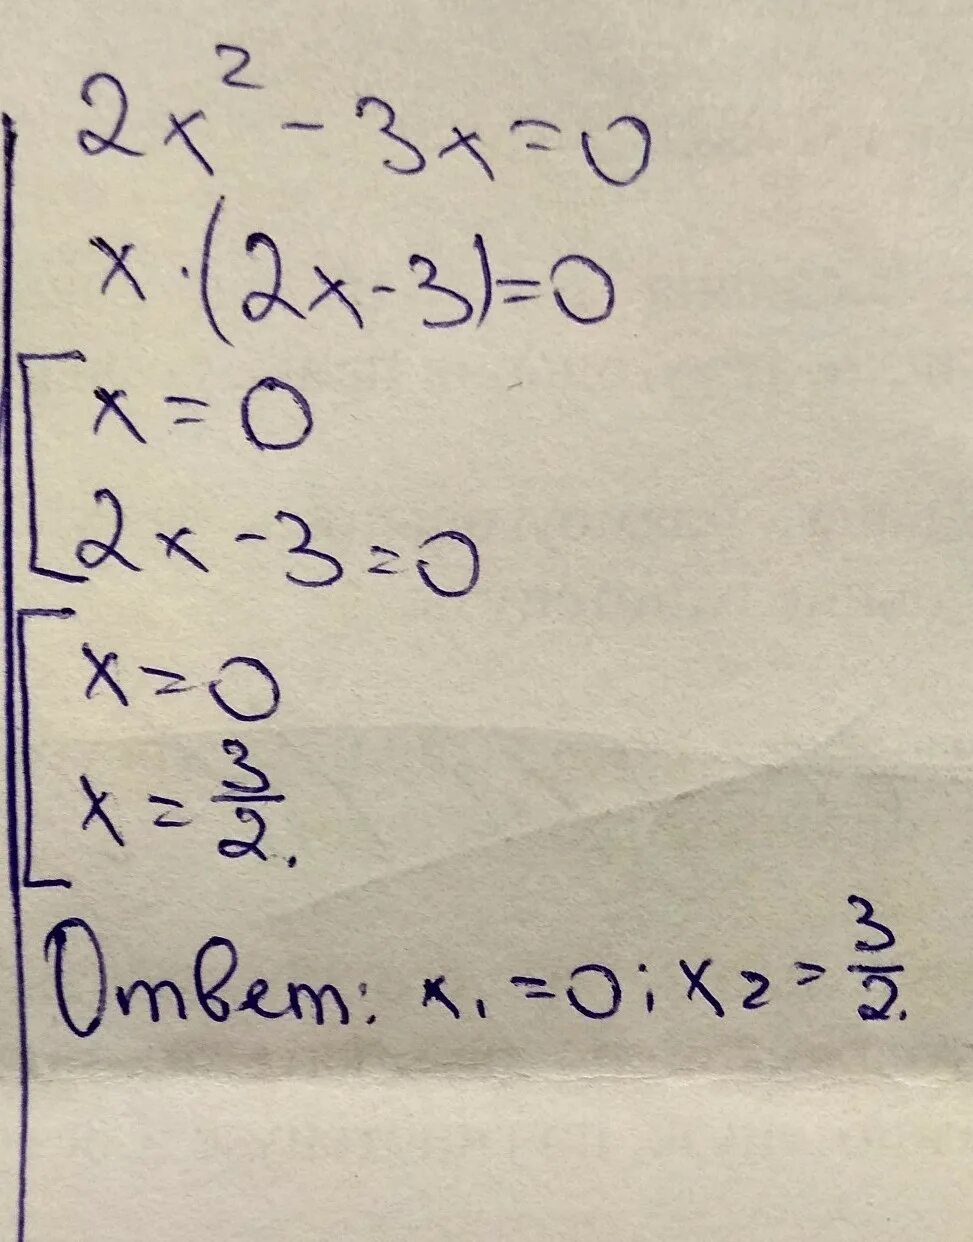 2x² - 3x = 0
x · (2x - 3) = 0
x = 0
2x - 3 = 0
x = 0
x = 3/2.
Ответ: x₁ = 0; x₂ = 3/2.